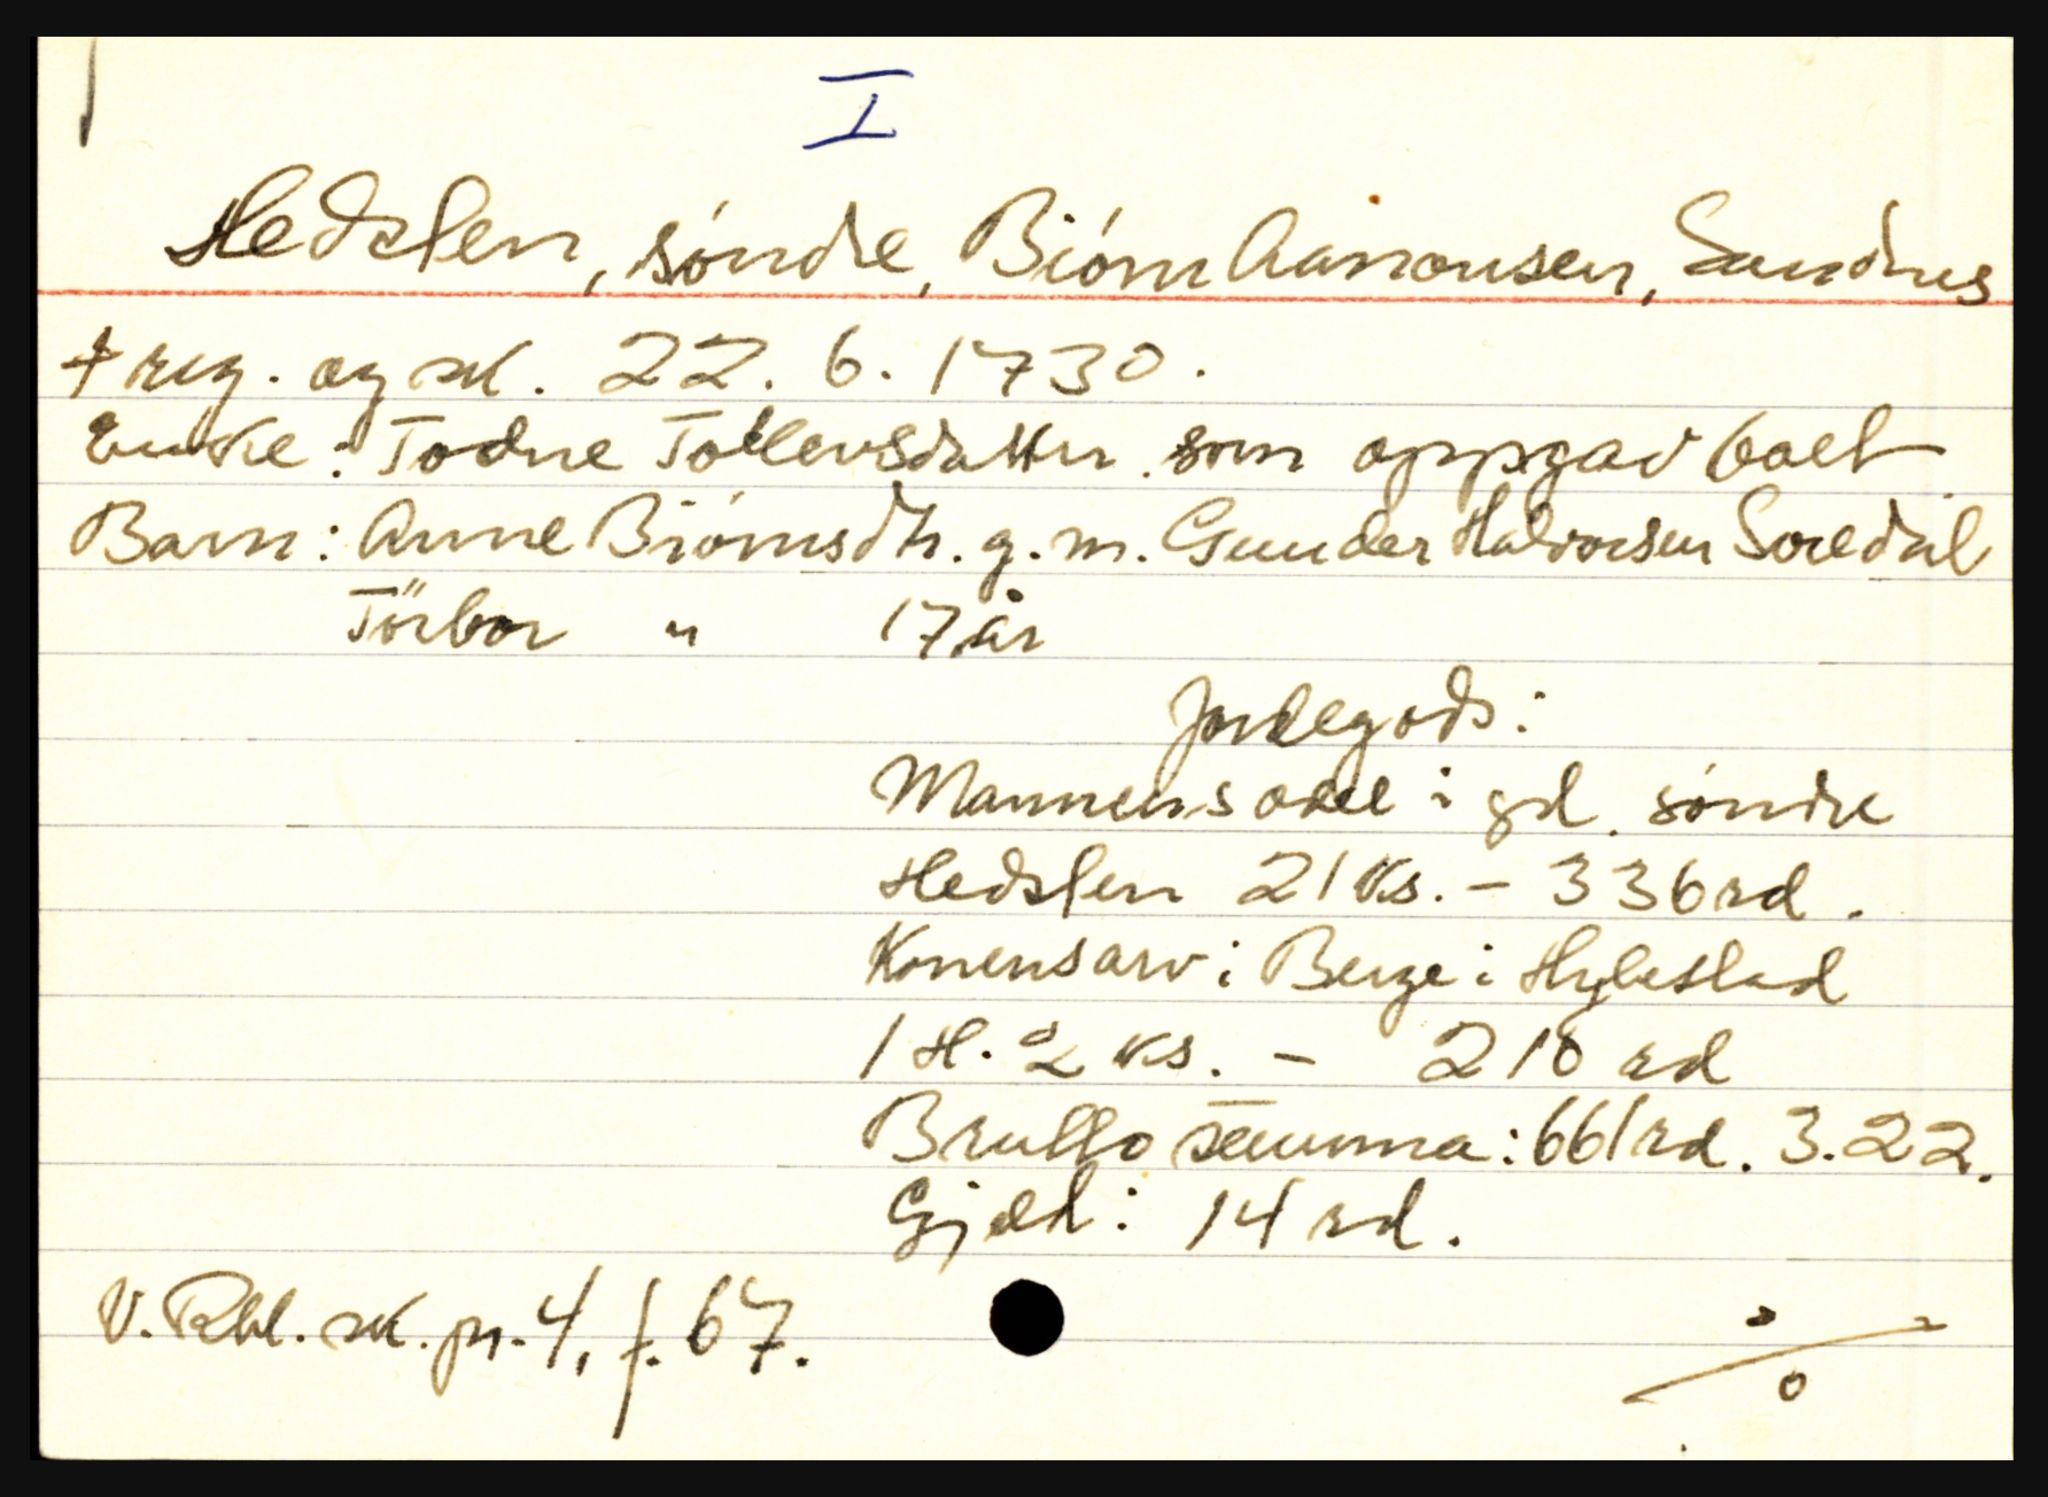 I
Hedslen, søndre, Biørn Aanonsen, Sandnes
† reg. og sk. 22. 6. 1730.
Enke: Todne Tollevsdatter som oppgav boet
Barn: Anne Biørnsdtr. g. m. Gunder Halvorsen
Törbor " 17 år
Jordegods:
Mannens odel i gd. søndre
Hedslen 21 ks. - 336 rd.
Konens arv i Berge i Hylestad
1 H. 2 ks. - 210 rd
Brutto summa: 661 rd. 3. 22.
Gjeld: 14 rd.
V. Rbl. sk. pr. 4, f. 67.